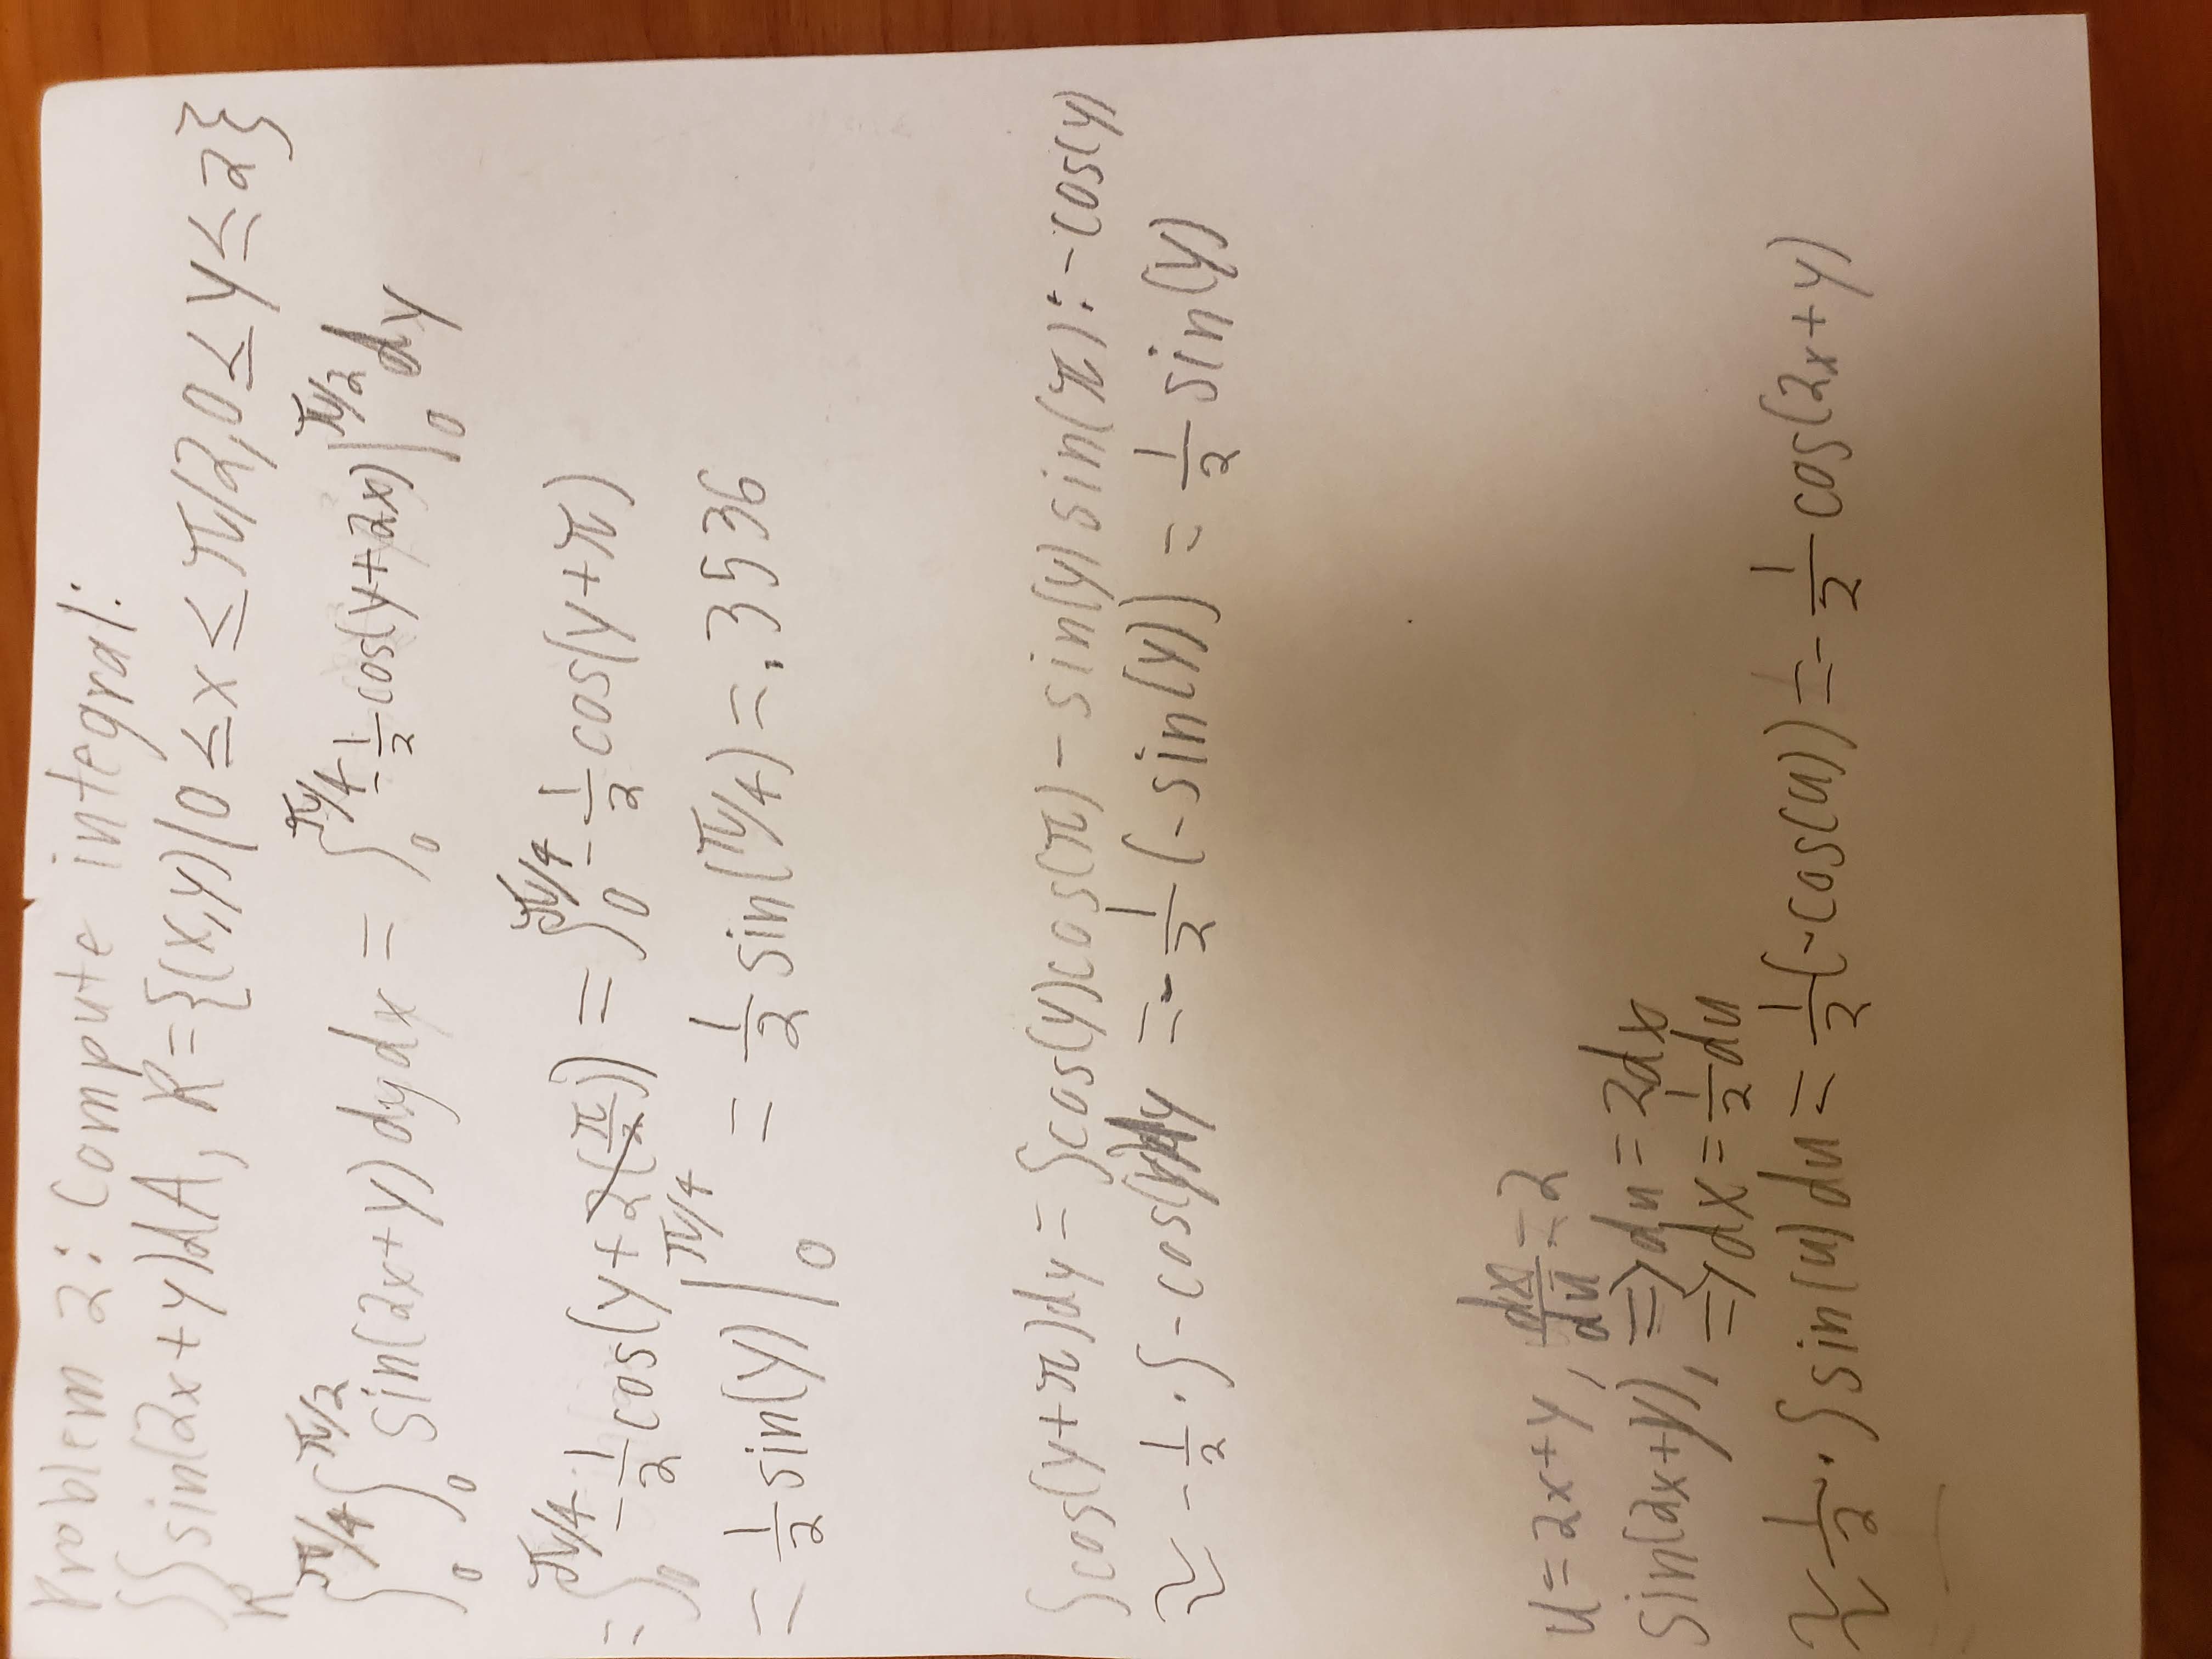 Problem 2: Compute integral:
∫∫_R sin(2x+y)dA, R={(x,y)|0≤x≤π/2,0≤y≤2}
∫_0^{π/4}∫_0^{π/2} sin(2x+y)dydx = ∫_0^{π/4} -1/2 cos(y+2x)|_0^{π/2} dy
=∫_0^{π/4} -1/2 cos(y+2(π/2)) = ∫_0^{π/4} -1/2 cos(y+π)
= 1/2 sin(y)|_0^{π/4} = 1/2 sin(π/4) = .3536
∫cos(y+π)dy = ∫cos(y)cos(π) - sin(y)sin(π): -cos(y)
≈ -1/2 · ∫-cos(y)dy = -1/2 (-sin(y)) = 1/2 sin(y)
u=2x+y, dx/du=2
sin(2x+y), ⇒du=2dx
⇒dx=1/2 du
≈ 1/2 · ∫sin(u)du = 1/2(-cos(u)) = -1/2 cos(2x+y)